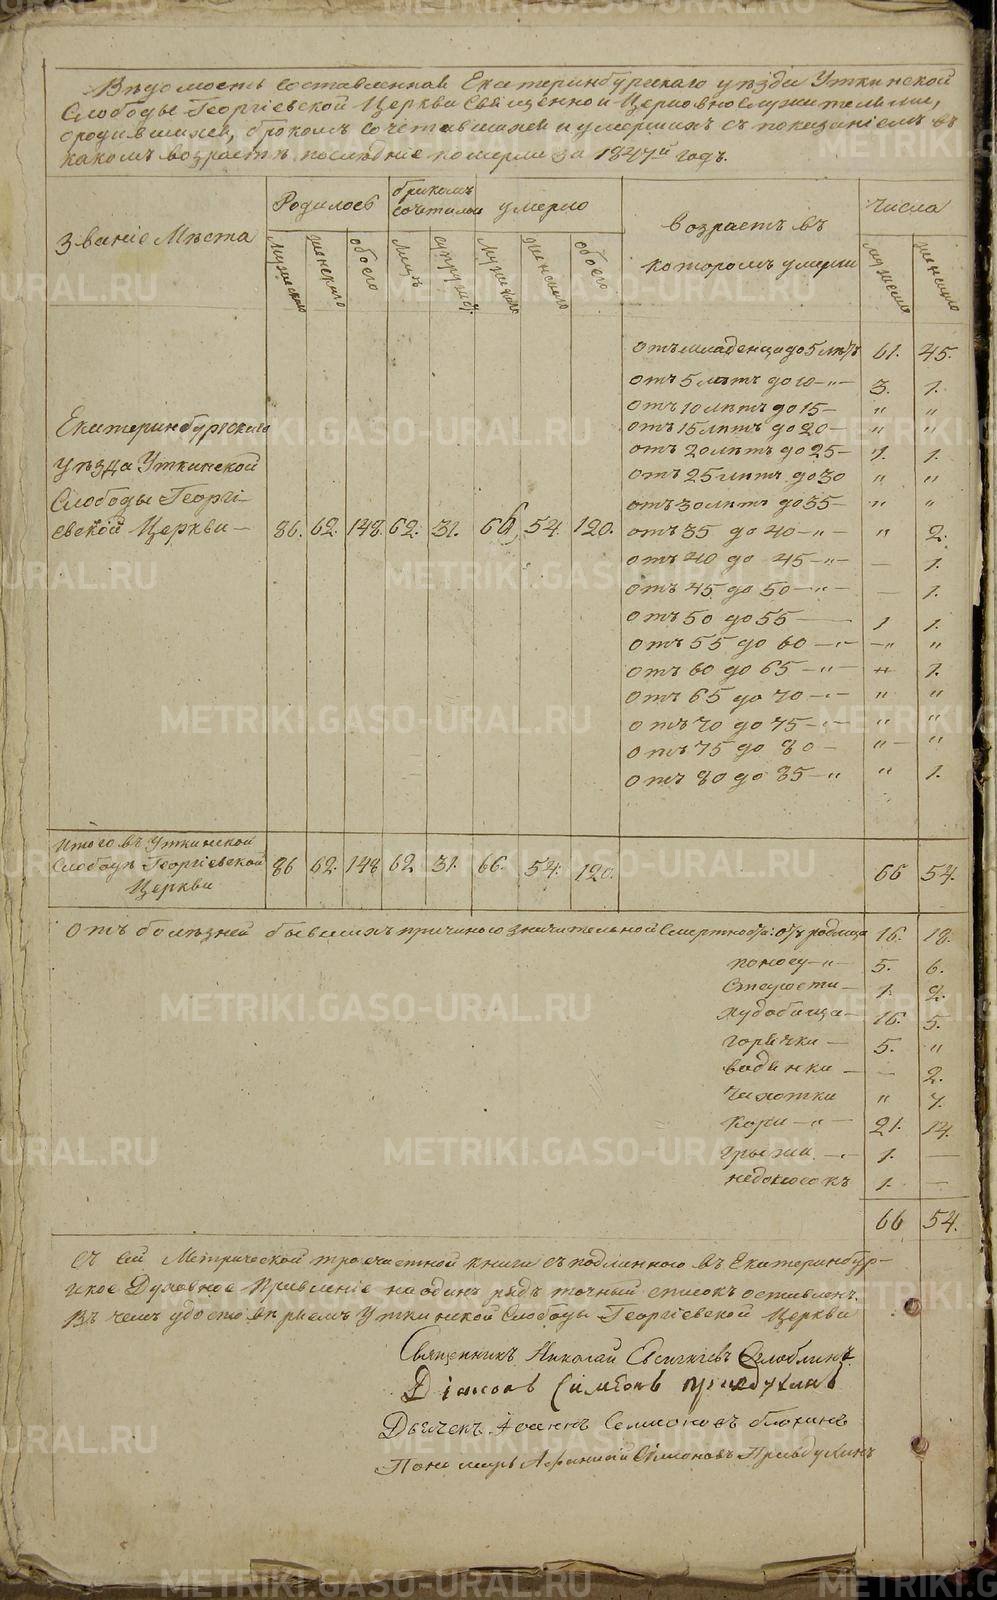 Вѣдомость составленная Екатеринбургскаго уѣзда Уткинской
Слободы Георгіевской Церкви Священно и Церковнослужителями,
о родившихся, бракомъ сочетавшихся и умершихъ съ показаніемъ въ
какомъ возрастѣ послѣдніе померли за 1847й годъ.
Званіе Мѣста
Родилось
бракомъ сочетались
умерло
возрастъ въ которомъ умерли
Числа
Мужескаго
женскаго
обоего
Лицъ
супруж:
Мужескаго
женскаго
обоего
мужеско
женско
отъ младенца до 5 лѣтъ 61. 45.
отъ 5 лѣтъ до 10 —„— 3. 1.
отъ 10 лѣтъ до 15 — „ „
отъ 15 лѣтъ до 20 — „ „
отъ 20 лѣтъ до 25 — 1. 1.
отъ 25 лѣтъ до 30 „ „
отъ 30 лѣтъ до 35 — „ „
Екатеринбургскаго
уѣзда Уткинской
Слободы Георгі-
евской Церкви — 86. 62. 148. 62. 31. 66, 54. 120. отъ 35 до 40 —„— „ 2.
отъ 40 до 45 —„— — 1.
отъ 45 до 50 —„— — 1.
отъ 50 до 55 — 1 1.
отъ 55 до 60 —„— —„ „
отъ 60 до 65 —„— „ 1.
отъ 65 до 70 —„— „ „
отъ 70 до 75 —„— „ „
отъ 75 до 80 — „— „
отъ 80 до 85 —„ „ 1.
Итого въ Уткинской
Слободѣ Георгіевской 86 62. 148 62 31. 66. 54. 120. 66 54.
Церкви
Отъ болѣзней бывшихъ причиною значительной Смертности: отъ родимца 16. 18.
поносу —„— 5. 6.
Старости — 1. 2.
худобища — 16. 5.
горячки — 5. „
водянки — — 2.
Чахотки „ 7.
Кори —„— 21. 14.
грыжи — 1. —
недоносокъ 1. —
66 54.
Съ сей Метрической троечастной книги съ подлинного въ Екатеринбур-
гское Духовное Правленіе на одинъ рядъ точный списокъ оставленъ.
Въ чемъ удостовѣряемъ Уткинской Слободы Георгіевской Церкви
Священникъ Николай
Діаконъ Симеонъ
Дьячекъ Іоаннъ Семионовъ
Пономарь Афанасій Симіоновъ
METRIKI.GASO-URAL.RU